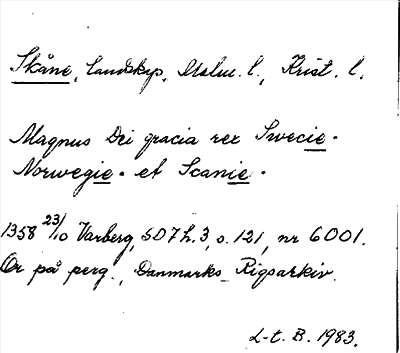 Skåne, landskap, Malm. l., Krist. l.
Magnus Dei gracia rex Swecie.
Norwegie. et Scanie.
1358 23/10 Varberg, SD 7 h.3, s. 121, nr 6001.
Or på perg., Danmarks Rigsarkiv.
L-t. B. 1983.